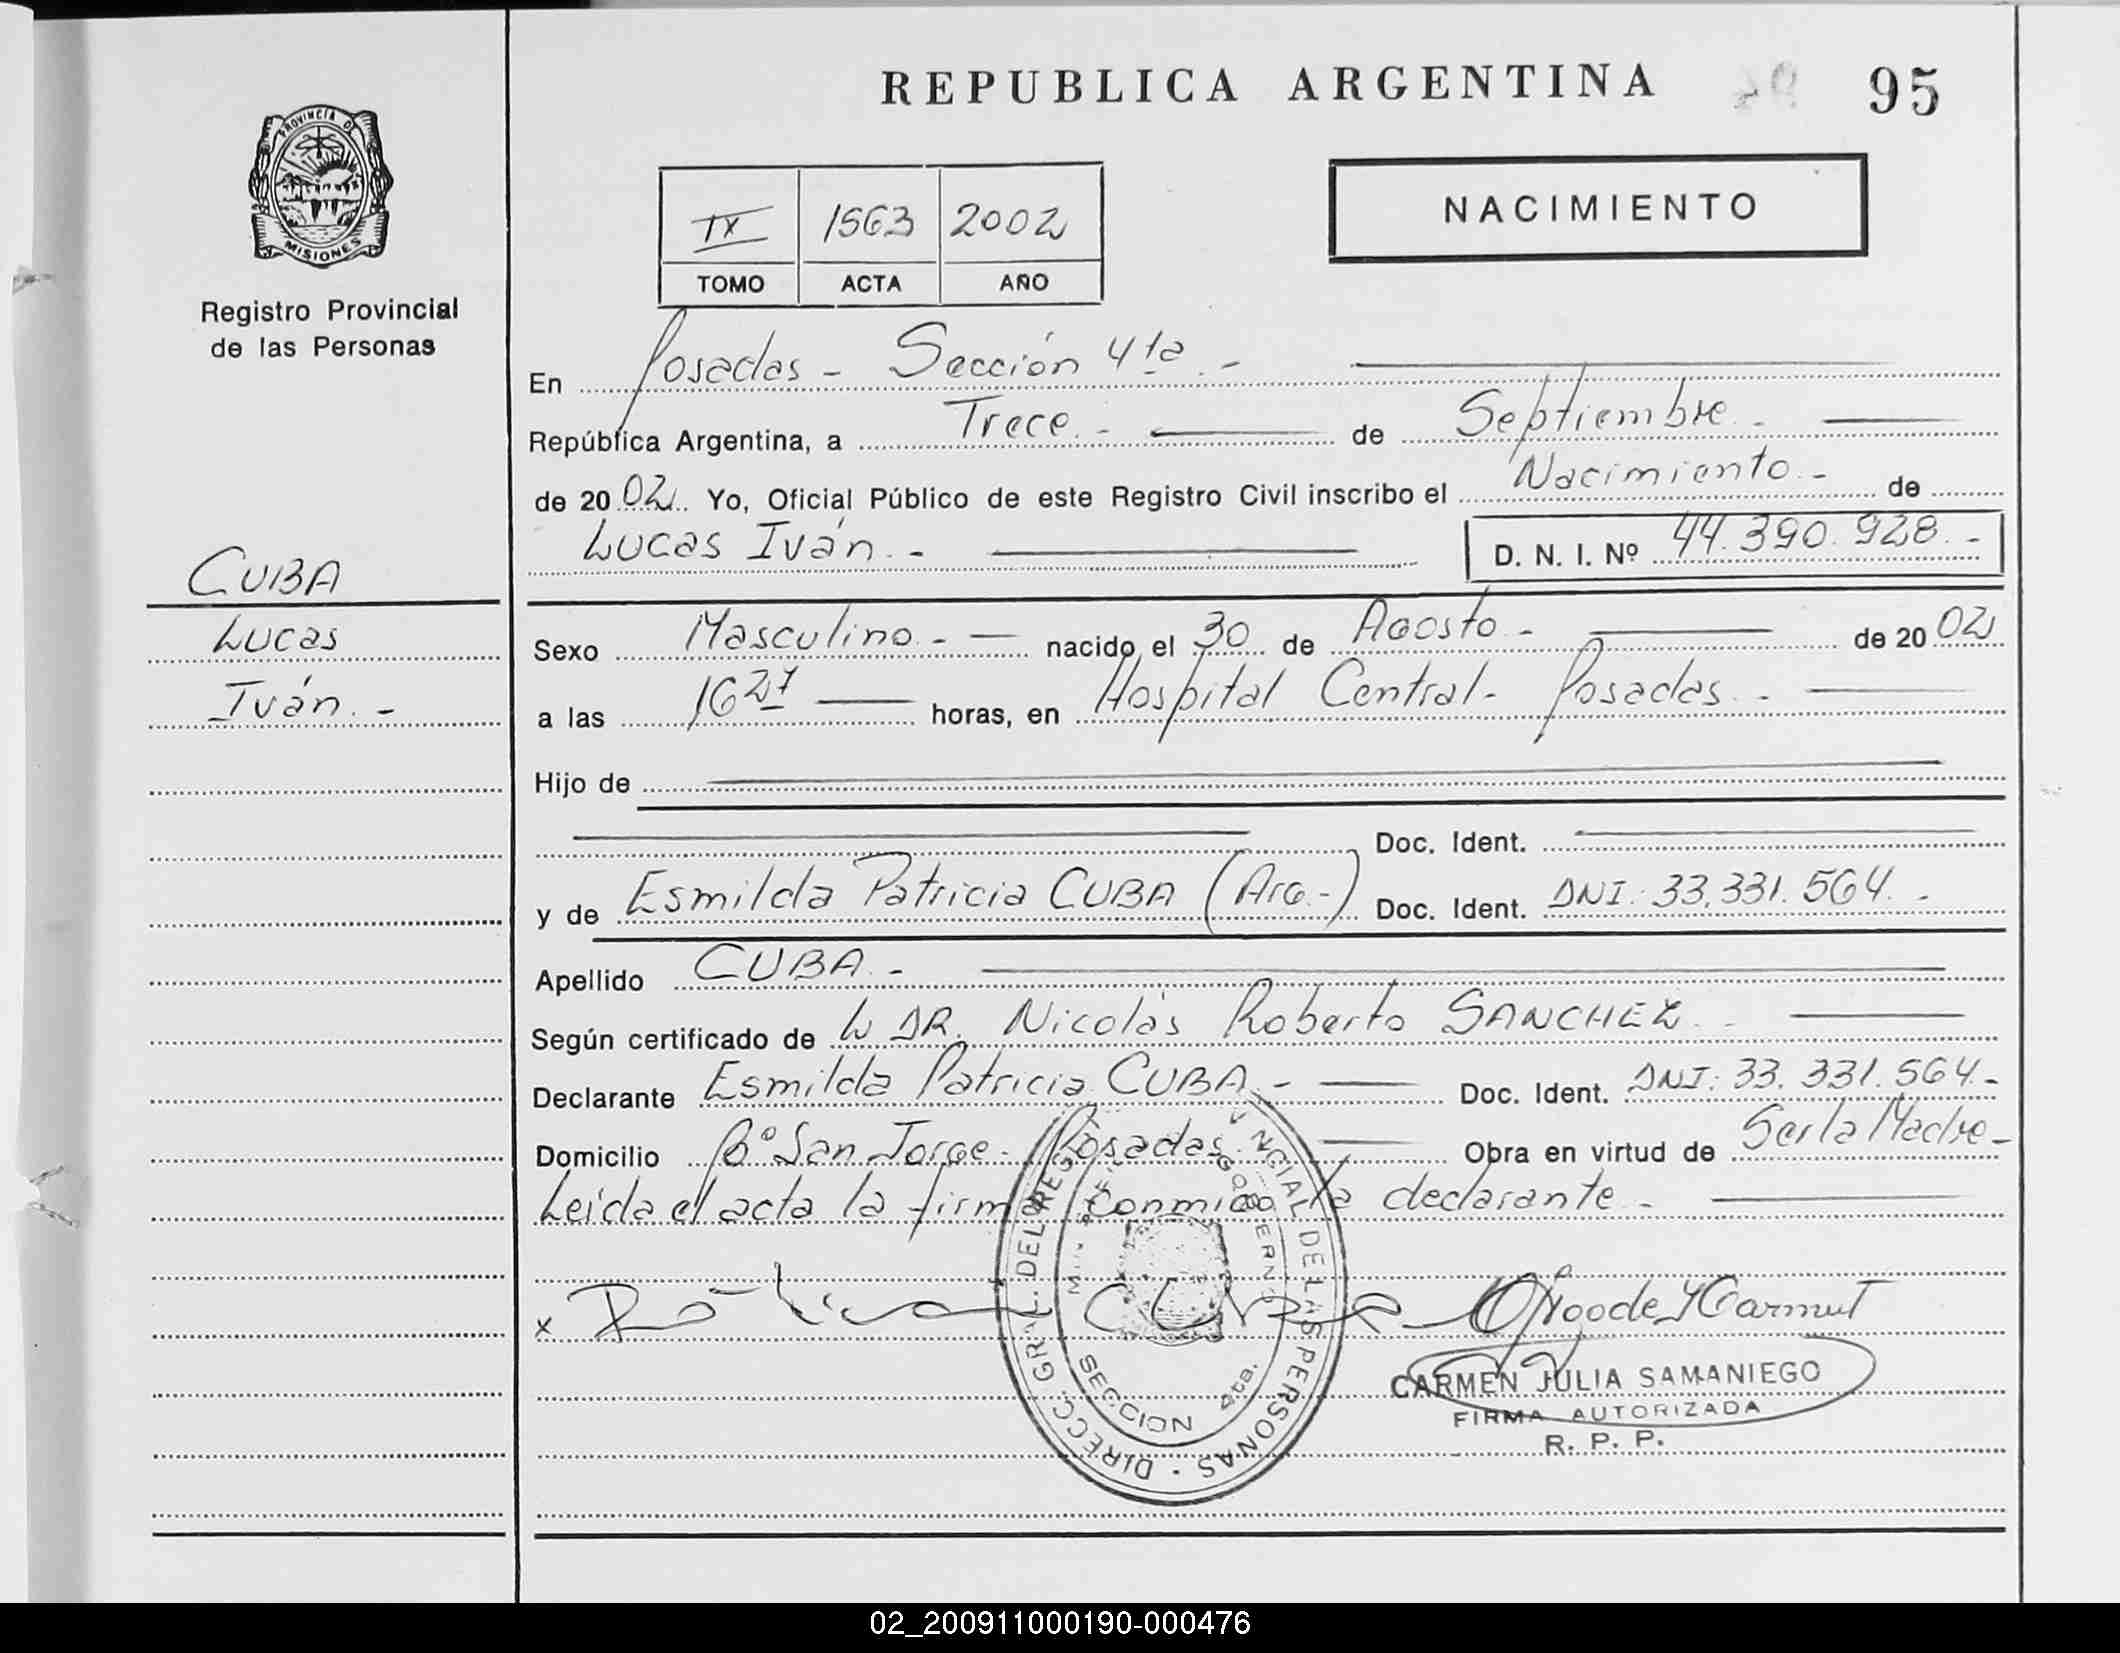 REPUBLICA ARGENTINA 95
PROVINCIA DE
MISIONES
Registro Provincial
de las Personas
IX 1563 2002
TOMO ACTA AÑO
NACIMIENTO
En Posadas - Sección 4ta. -
República Argentina, a Trece. - de Septiembre. -
de 2002. Yo, Oficial Público de este Registro Civil inscribo el Nacimiento. - de
Lucas Iván. - D. N. I. Nº 44.390.928. -
CUBA
Lucas
Iván. -
Sexo Masculino. - nacido el 30 de Agosto. - de 2002
a las 16 27 horas, en Hospital Central - Posadas. -
Hijo de
Doc. Ident.
y de Esmilda Patricia CUBA (Arg.-) Doc. Ident. DNI: 33.331.564. -
Apellido CUBA. -
Según certificado de DR. Nicolás Roberto SANCHEZ. -
Declarante Esmilda Patricia CUBA. - Doc. Ident. DNI: 33.331.564. -
Domicilio Bº San Jorge - Posadas. Obra en virtud de Ser la Madre -
Leída el acta la firma conmigo la declarante. -
x
DIRECC. GRAL. DEL REG PROVINCIAL DE LAS PERSONAS
GOBIERNO
SECCION 4ta.
CARMEN JULIA SAMANIEGO
FIRMA AUTORIZADA
R. P. P.
02_200911000190-000476